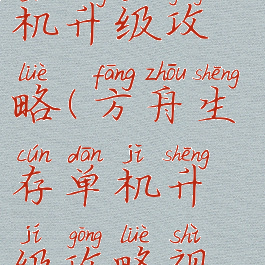 机升级攻
lüè fāng zhōu shēng
略(方舟生
cún dān jī shēng
存单机升
jí gōng lüè shì
级攻略视